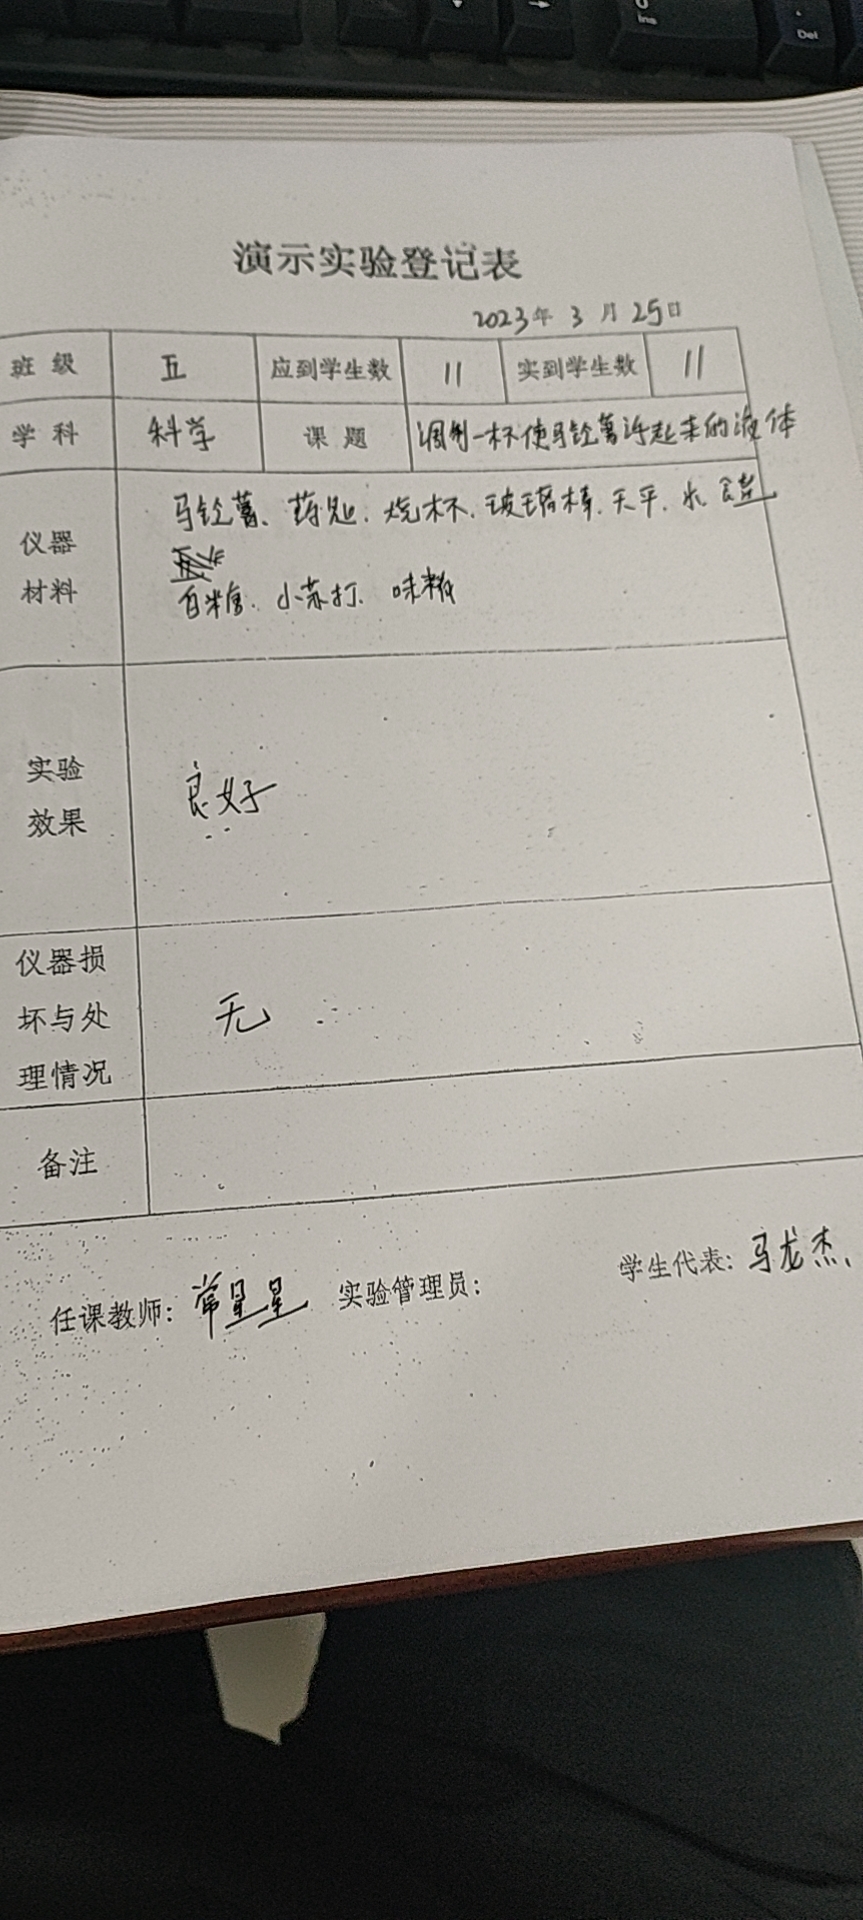 Ins
Del
演示实验登记表
2023年 3 月 25日
班 级 五 应到学生数 11 实到学生数 11
学 科 科学 课 题 调制一杯使马铃薯浮起来的液体
仪器
材料
马铃薯、药匙、烧杯、玻璃棒、天平、水 食盐
白糖、小苏打、味精
实验
效果
良好
仪器损
坏与处
理情况
无
备注
任课教师：常星星 实验管理员： 学生代表：马龙杰